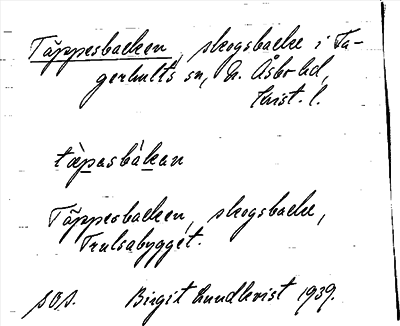 Täppesbacken, skogsbacke i Tå-
gerhults sn, N. Åsbo hd,
Krist. l.
tæ̀pasbákan
Täppesbacken, skogsbacke,
Trulsabygget.
Birgit Lundkvist 1939.